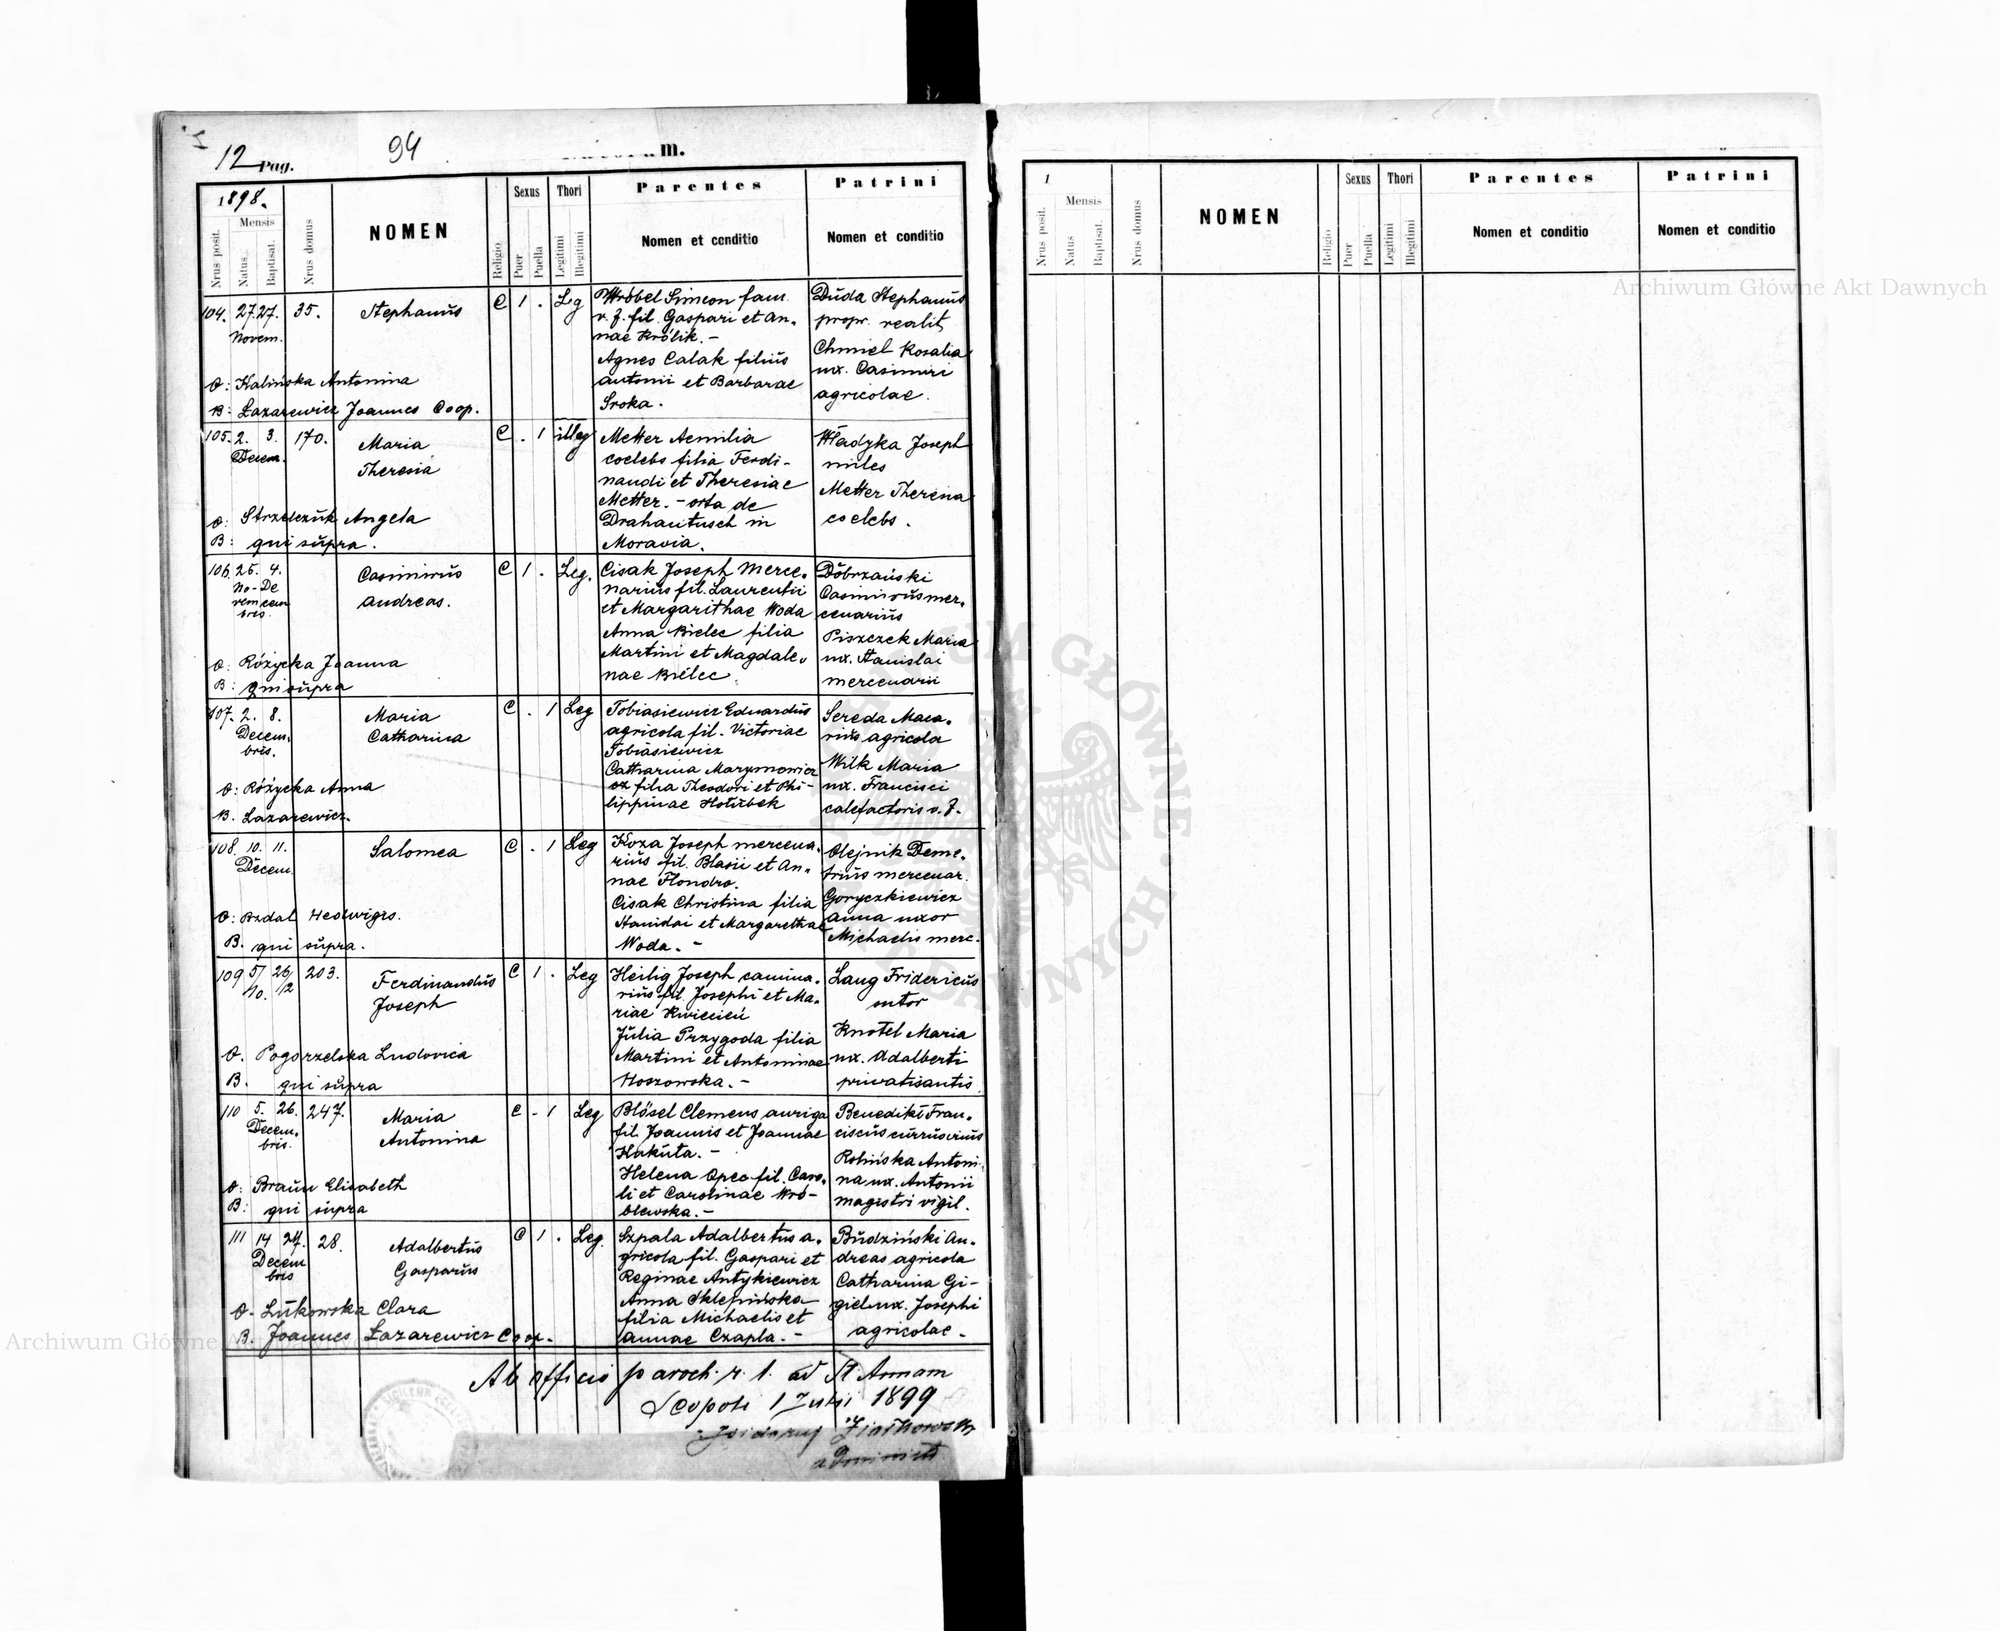 12 Pag.
94
m.
1898.
Nrus posit.
Mensis
Natus
Baptisat.
Nrus domus
NOMEN
Religio
Sexus
Puer
Puella
Thori
Legitimi
Illegitimi
Parentes
Nomen et conditio
Patrini
Nomen et conditio
104. 27. 27. Novem. 35. Stephanus C 1 . Leg
Wróbel Simeon fam.
v. f. fil. Gaspari et An-
nae Królik. -
Agnes Calak filius
Antonii et Barbarae
Sroka.
Duda Stephanus
propr. realit
Chmiel Rosalia
ux. Casimiri
agricolae.
O: Kalińska Antonina
B: Łazarewicz Joannes Coop.
105. 2. 3. Decem. 170. Maria
Theresia C . 1 illeg
Metter Aemilia
coelebs filia Ferdi-
nandi et Theresiae
Metter. - orta de
Drahautusch in
Moravia.
Władyka Joseph
miles
Metter Theresia
coelebs.
O: Strzelczuk Angela
B: qui supra.
106. 25. 4. No- De
vem cem
bris. Casimirus
Andreas. C 1 . Leg.
Cisak Joseph merce-
narius fil. Laurentii
et Margarithae Woda
Anna Bielec filia
Martini et Magdale-
nae Bielec
Dobrzański
Casimirus mer-
cenarius
Piszczek Maria
ux. Stanislai
mercenarii
O: Różycka Joanna
B: qui supra
107. 2. 8. Decem-
bris. Maria
Catharina C . 1 Leg
Tobiasiewicz Eduardus
agricola fil. Victoriae
Tobiasiewicz
Catharina Marynowicz
ex filia Theodori et Phi-
lippinae Hołubek
Sereda Maca-
rius agricola
Wilk Maria
ux. Francisci
calefactoris v. f.
O: Różycka Anna
B. Łazarewicz.
108. 10. 11. Decem Salomea C . 1 Leg
Koza Joseph mercena-
rius fil. Blasii et An-
nae Hondro.
Cisak Christina filia
Stanislai et Margarethae
Woda. -
Olejnik Deme-
trius mercenar.
Goryczkiewicz
Anna uxor
Michaelis merc.
O: Bzdal Hedwigis.
B. qui supra.
109 5/10. 26/12 203. Ferdinandus
Joseph C 1 . Leg
Heilig Joseph camina-
rius fil. Josephi et Ma-
riae Kwiecień
Julia Przygoda filia
Martini et Antoninae
Hoszowska. -
Laug Fridericus
sutor
Knotel Maria
ux. Adalberti
privatisantis
O. Pogorzelska Ludovica
B. qui supra
110 5. 26. Decem-
bris. 247. Maria
Antonina C . 1 Leg
Blösel Clemens auriga
fil. Joannis et Joannae
Kakuta. -
Helena Opec fil. Caro-
li et Carolinae Wró-
blewska. -
Benedikt Fran-
ciscus currusrius
Rolińska Antoni-
na ux. Antonii
magistri vigil.
O: Braun Elisabeth
B: qui supra
111 14 27. Decem
bris 28. Adalbertus
Gasparus C 1 . Leg.
Szpala Adalbertus a-
gricola fil. Gaspari et
Reginae Antykiewicz
Anna Sklepińska
filia Michaelis et
Annae Czapla. -
Budziński An-
dreas agricola
Catharina Gi-
giel ux. Josephi
agricolae.
O. Łukowska Clara
B. Joannes Łazarewicz Coop.
Ab officio paroch. r. l. ad St. Annam
Leopoli 1 Julii 1899
administ
1
Nrus posit.
Mensis
Natus
Baptisat.
Nrus domus
NOMEN
Religio
Sexus
Puer
Puella
Thori
Legitimi
Illegitimi
Parentes
Nomen et conditio
Patrini
Nomen et conditio
Archiwum Główne Akt Dawnych
Archiwum Główne Akt Dawnych